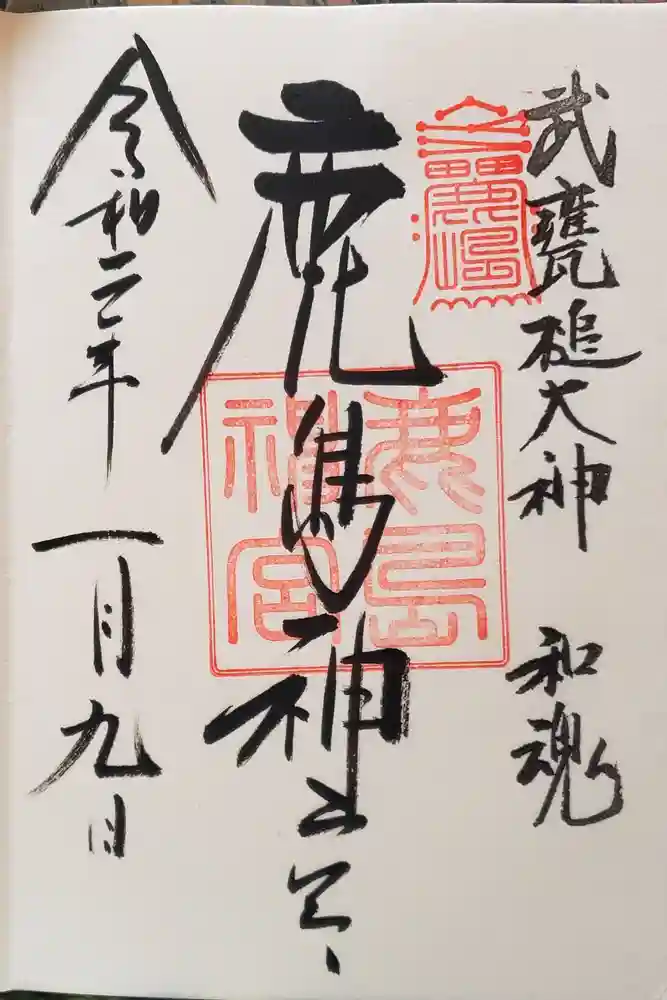 武甕槌大神　和魂
鹿島神宮
鹿島神宮
令和三年一月九日